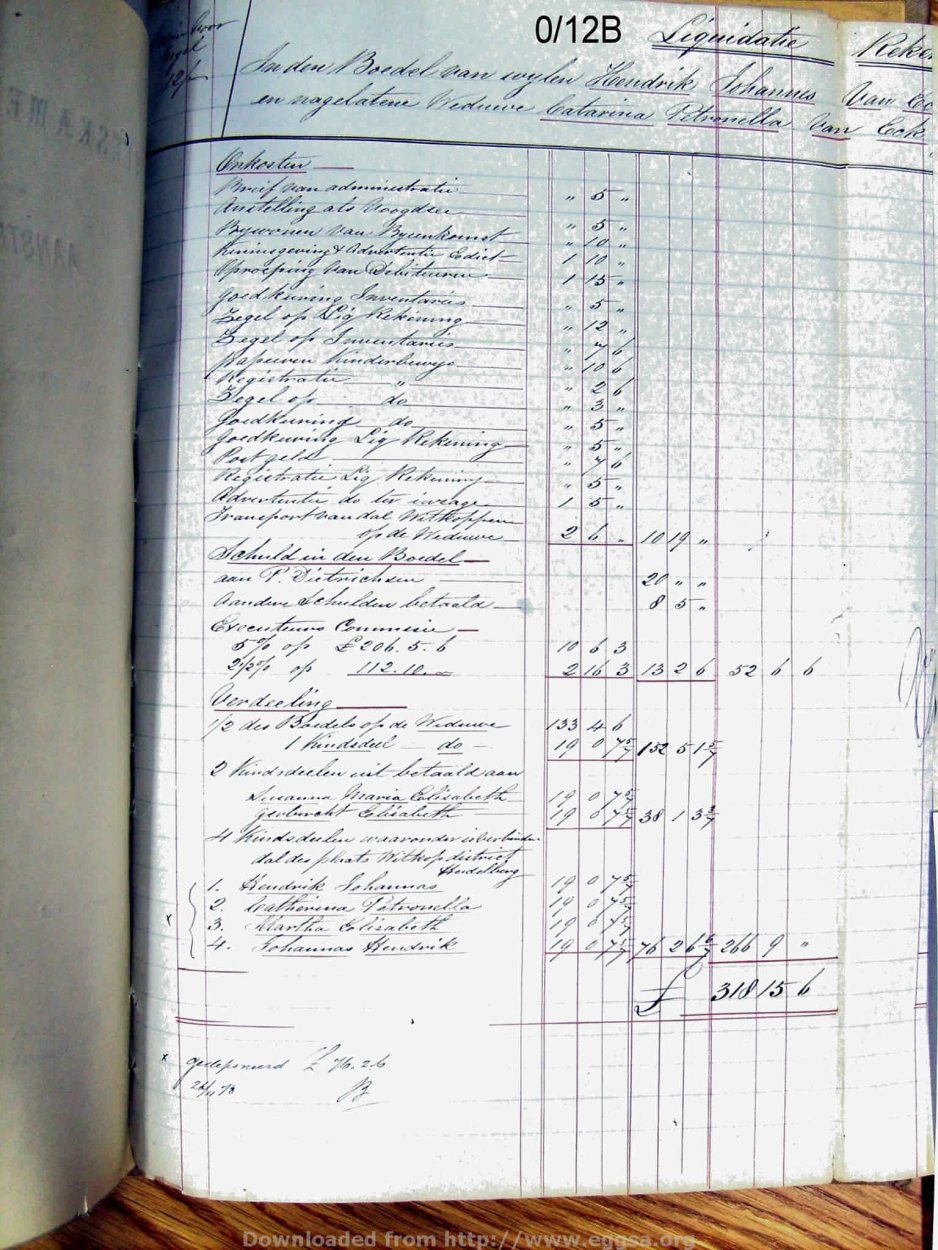 0/12B
Liquidatie Reken
In den Boedel van wylen Hendrik Johannes Van Ec
en nagelatene Weduwe Catarina Petronella Van Eck
Onkosten
Brief van administratie " 5 "
Anstelling als Voogdes " 5 "
Bywonen van Byeenkomst " 10 "
Kennisgeving & Advertentie Edict 1 10 "
Oproeping van Debiteuren 1 15 "
goedkeuring Inventaris " 5 "
Zegel op Liq Rekening " 12 "
Zegel op Inventaris " 7 6
papieren Kinderbewys " 10 6
Registratie " " 2 6
Zegel op do " 3 "
Goedkeuring do " 5 "
goedkeuring Liq Rekening " 5 "
Postgeld " 7 6
Registratie Liq Rekening " 5 "
Advertentie do ter inzage 1 5 "
Transport van dal Witkoppen
op de Weduwe 2 6 " 10 19 "
Schuld in den Boedel
aan P. Dietrichsen 20 " "
Aandere Schulden betaald 8 5 "
Executeurs Commissie
5% op £206.5.6 10 6 3
2½% op 112.10.- 2 16 3 13 2 6 52 6 6
Verdeeling
1/2 des Boedels op de Weduwe 133 4 6
1 Kindsdeel - do - 19 0 7 5/7 152 5 1 5/7
2 Kindsdeelen uit betaald aan
Susanna Maria Elisabeth 19 0 7 5/7
Elisabeth 19 0 7 5/7 38 1 3 3/7
4 Kindsdeelen waaronder is verbinden
dal des plaats Witkop district
Heidelberg
1. Hendrik Johannas 19 0 7 5/7
2. Catherina Petronella 19 0 7 5/7
x 3. Martha Elisabeth 19 0 7 5/7
4. Johannas Hendrik 19 0 7 5/7 76 2 6 6/7 266 9 "
£ 318 15 6
x gedeponeerd £ 76.2.6